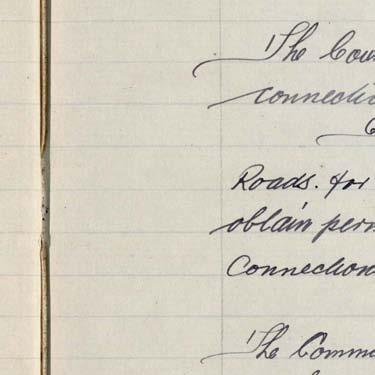 The Cou
connectio
Roads. for
obtain perm
Connection
The Commi